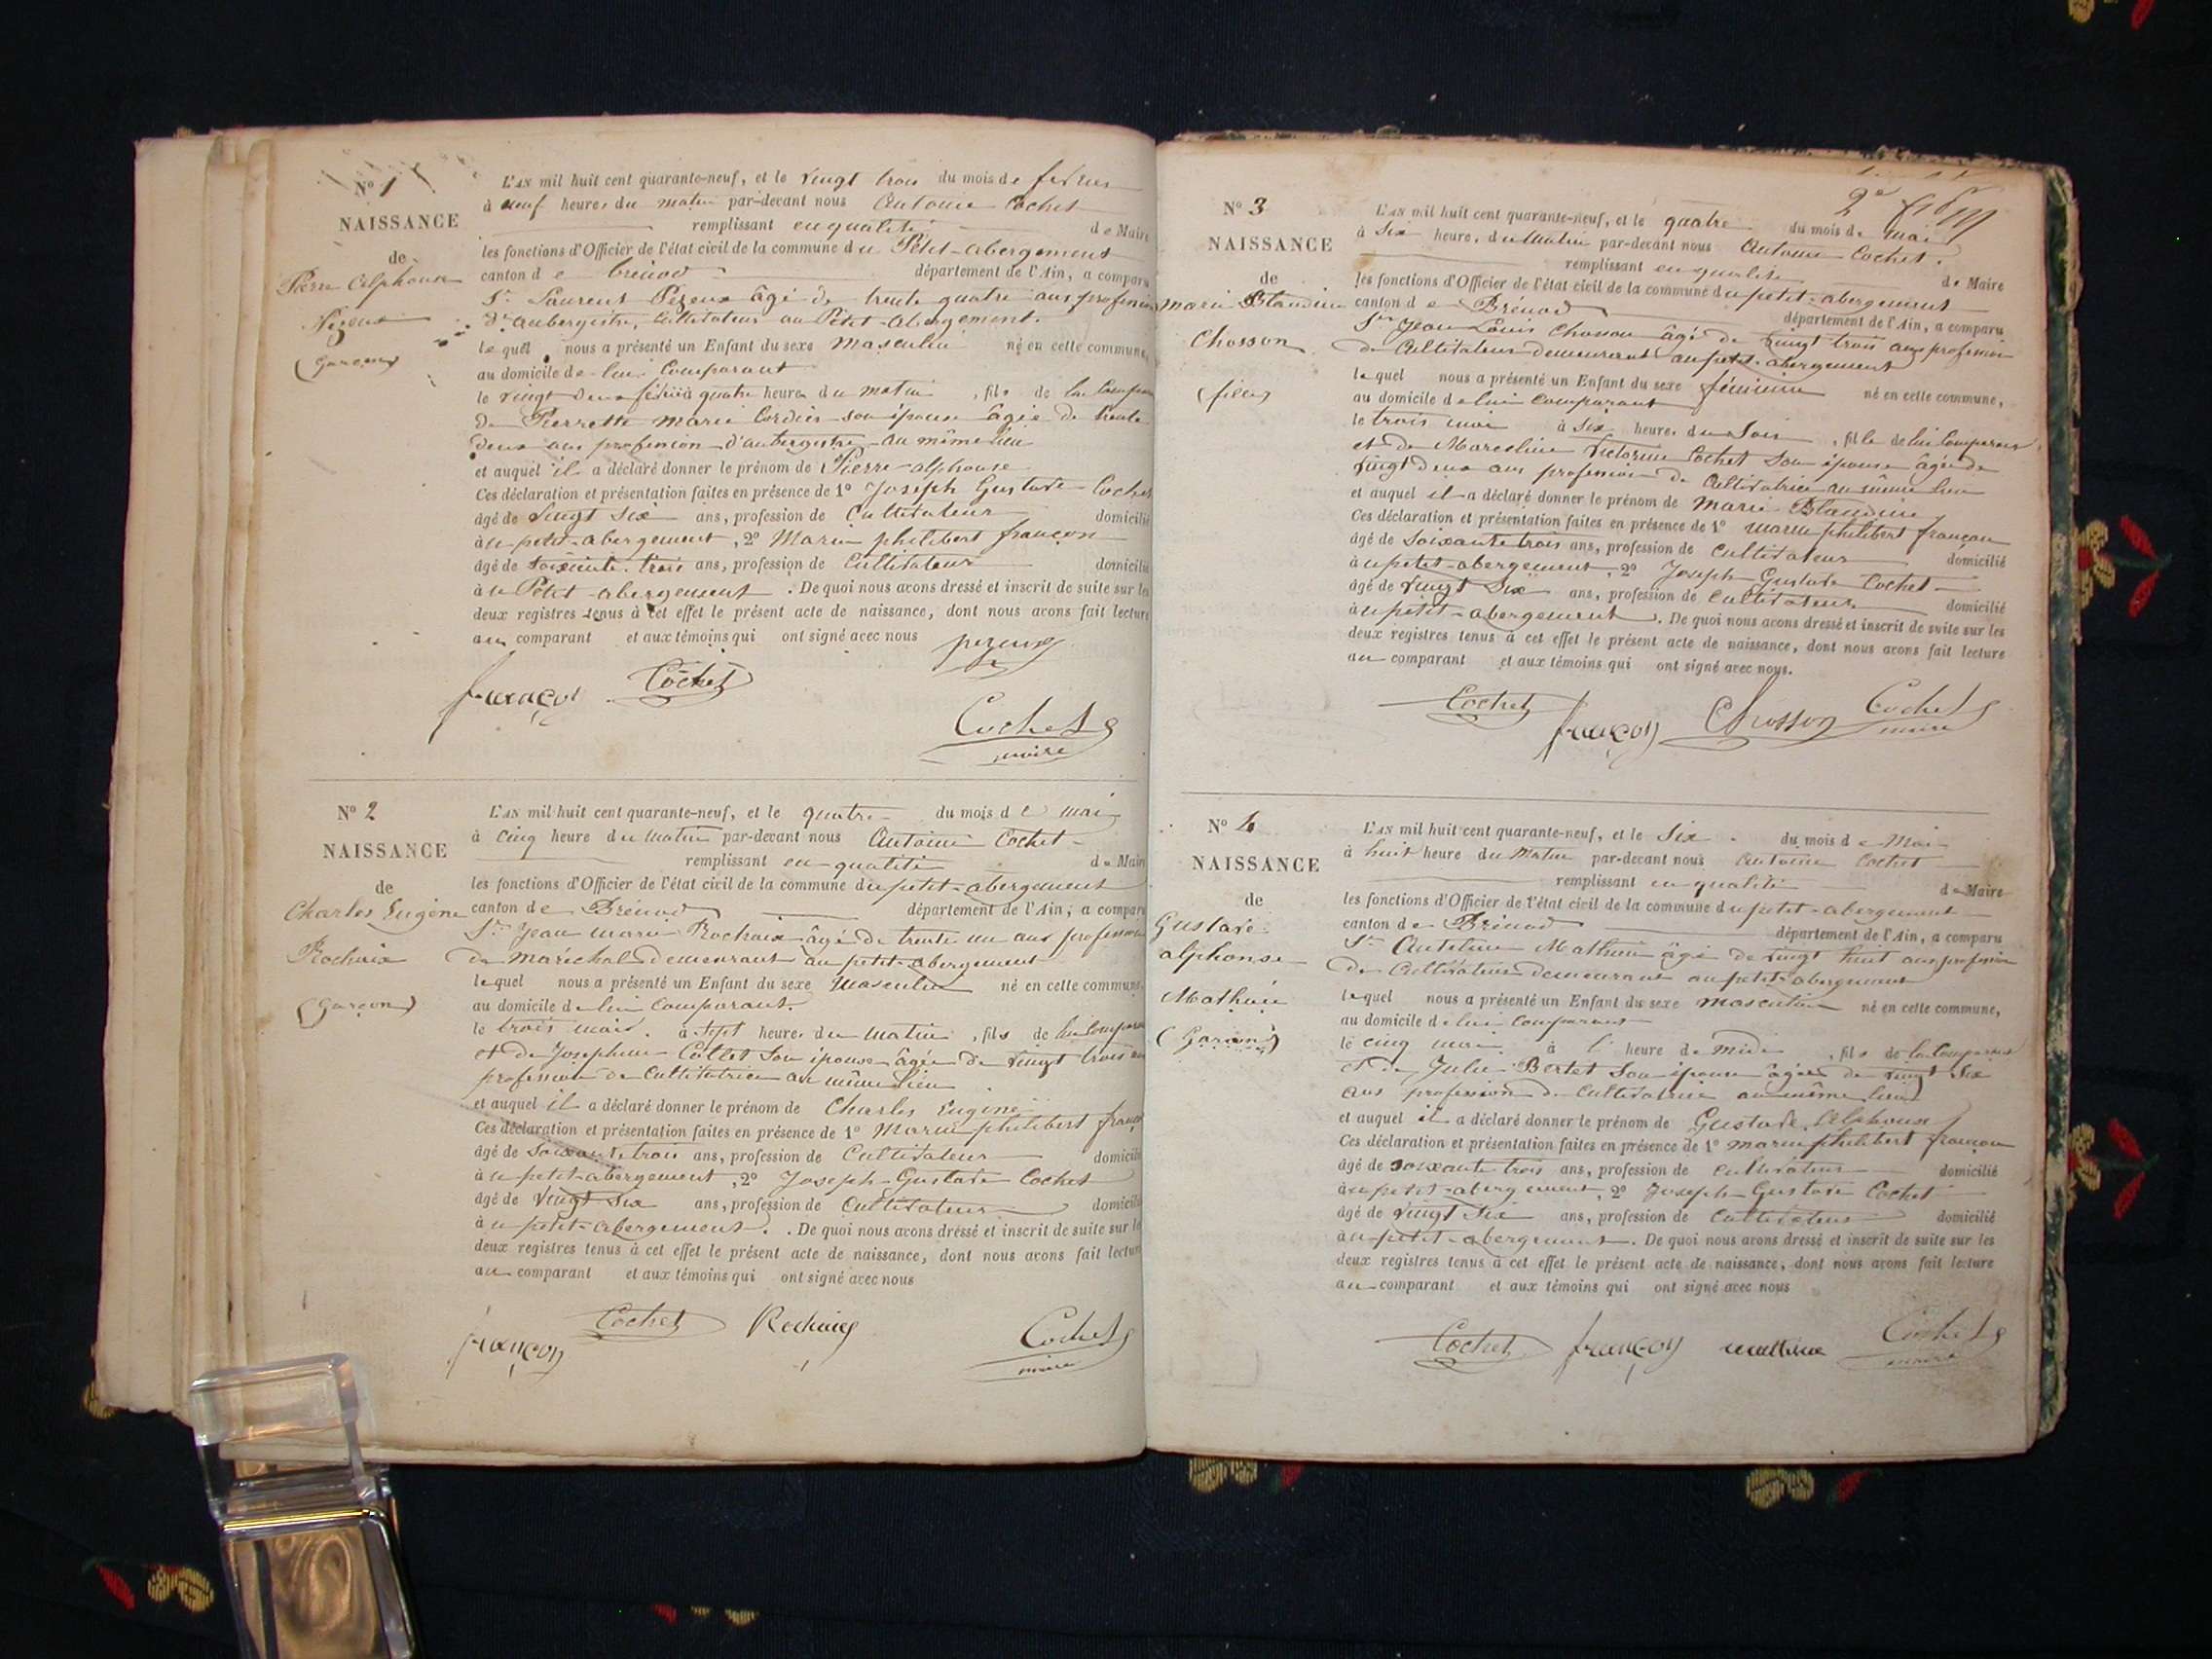 Nº 1
NAISSANCE
de
Pierre Alphonse
Pezeux
(Garçon)
L'AN mil huit cent quarante-neuf, et le vingt trois du mois de février
à neuf heures du matin par-devant nous Antoine Cochet
remplissant en qualité de Maire
les fonctions d'Officier de l'état civil de la commune du Petit-abergement
canton de brénod département de l'Ain, a comparu
Sr Laurent Pezeux âgé de trente quatre ans profession
d'aubergiste, Cultivateur au Petit-abergement.
lequel nous a présenté un Enfant du sexe Masculin né en cette commune,
au domicile de lui Comparant
le vingt deux février à quatre heures du matin, fils de lui Compar
de Pierrette marie Cordier son épouse âgée de trente
deux ans profession d'aubergiste au même lieu
et auquel il a déclaré donner le prénom de Pierre-alphonse
Ces déclaration et présentation faites en présence de 1º Joseph Gustave Cochet
âgé de vingt six ans, profession de Cultivateur domicilié
au petit-abergement, 2º Marin philibert françon
âgé de soixante trois ans, profession de Cultivateur domicilié
au Petit-abergement. De quoi nous avons dressé et inscrit de suite sur les
deux registres tenus à cet effet le présent acte de naissance, dont nous avons fait lecture
au comparant et aux témoins qui ont signé avec nous
pezeux
françon Cochet
Cochet
maire
Nº 2
NAISSANCE
de
Charles Eugène
Rochaix
(Garçon)
L'AN mil huit cent quarante-neuf, et le quatre du mois de mai
à cinq heure du matin par-devant nous Antoine Cochet
remplissant en qualité de Maire
les fonctions d'Officier de l'état civil de la commune du petit-abergement
canton de Brénod département de l'Ain, a comparu
Sr Jean marie Rochaix âgé de trente un ans profession
de maréchal demeurant au petit-abergement
lequel nous a présenté un Enfant du sexe Masculin né en cette commune,
au domicile de lui Comparant.
le trois mai à sept heures du matin, fils de lui Compara
et de Josephine Collet son épouse âgée de vingt trois ans
profession de Cultivatrice au même lieu
et auquel il a déclaré donner le prénom de Charles Eugène
Ces déclaration et présentation faites en présence de 1º Marin philibert franço
âgé de soixante trois ans, profession de Cultivateur domicilié
au petit-abergement, 2º Joseph-Gustave Cochet
âgé de vingt six ans, profession de Cultivateur domicilié
au petit-abergement. De quoi nous avons dressé et inscrit de suite sur le
deux registres tenus à cet effet le présent acte de naissance, dont nous avons fait lecture
au comparant et aux témoins qui ont signé avec nous
françon Cochet Rochaix Cochet
maire
2e
Nº 3
NAISSANCE
de
marie Blandine
Chosson
(fille)
L'AN mil huit cent quarante-neuf, et le quatre du mois de mai
à six heure, du Matin par-devant nous Antoine Cochet.
remplissant en qualité de Maire
les fonctions d'Officier de l'état civil de la commune du petit-abergement
canton de Brénod département de l'Ain, a comparu
Sr Jean Louis Chosson âgé de vingt trois ans profession
de Cultivateur demeurant au petit-abergement
lequel nous a présenté un Enfant du sexe féminin né en cette commune,
au domicile de lui Comparant
le trois mai à six heures du Soir, fille de lui Comparant
et de Marceline Victorine Cochet son épouse âgée de
vingt deux ans profession de Cultivatrice au même lieu
et auquel il a déclaré donner le prénom de Marie Blandine
Ces déclaration et présentation faites en présence de 1º marin philibert françon
âgé de soixante trois ans, profession de Cultivateur domicilié
au petit-abergement, 2º Joseph Gustave Cochet
âgé de vingt six ans, profession de Cultivateur domicilié
au petit-abergement. De quoi nous avons dressé et inscrit de suite sur les
deux registres tenus à cet effet le présent acte de naissance, dont nous avons fait lecture
au comparant et aux témoins qui ont signé avec nous.
Cochet françon Chosson Cochet
maire
Nº 4
NAISSANCE
de
Gustave
alphonse
Mathieu
(Garçon)
L'AN mil huit cent quarante-neuf, et le Six du mois de Mai
à huit heure du Matin par-devant nous Antoine Cochet
remplissant en qualité de Maire
les fonctions d'Officier de l'état civil de la commune du petit-abergement
canton de Brénod département de l'Ain, a comparu
Sr Antelme Mathieu âgé de vingt huit ans profession
de Cultivateur demeurant au petit-abergement
lequel nous a présenté un Enfant du sexe masculin né en cette commune,
au domicile de lui Comparant
le cinq mai à l' heure de midi, fils de lui Comparant
et de Julie Bertet son épouse âgée de vingt six
ans profession de Cultivatrice au même lieu
et auquel il a déclaré donner le prénom de Gustave Alphonse
Ces déclaration et présentation faites en présence de 1º marin philibert françon
âgé de soixante trois ans, profession de cultivateur domicilié
au petit-abergement, 2º Joseph-Gustave Cochet
âgé de vingt six ans, profession de Cultivateur domicilié
au petit-abergement. De quoi nous avons dressé et inscrit de suite sur les
deux registres tenus à cet effet le présent acte de naissance, dont nous avons fait lecture
au comparant et aux témoins qui ont signé avec nous
Cochet françon mathieu Cochet
maire